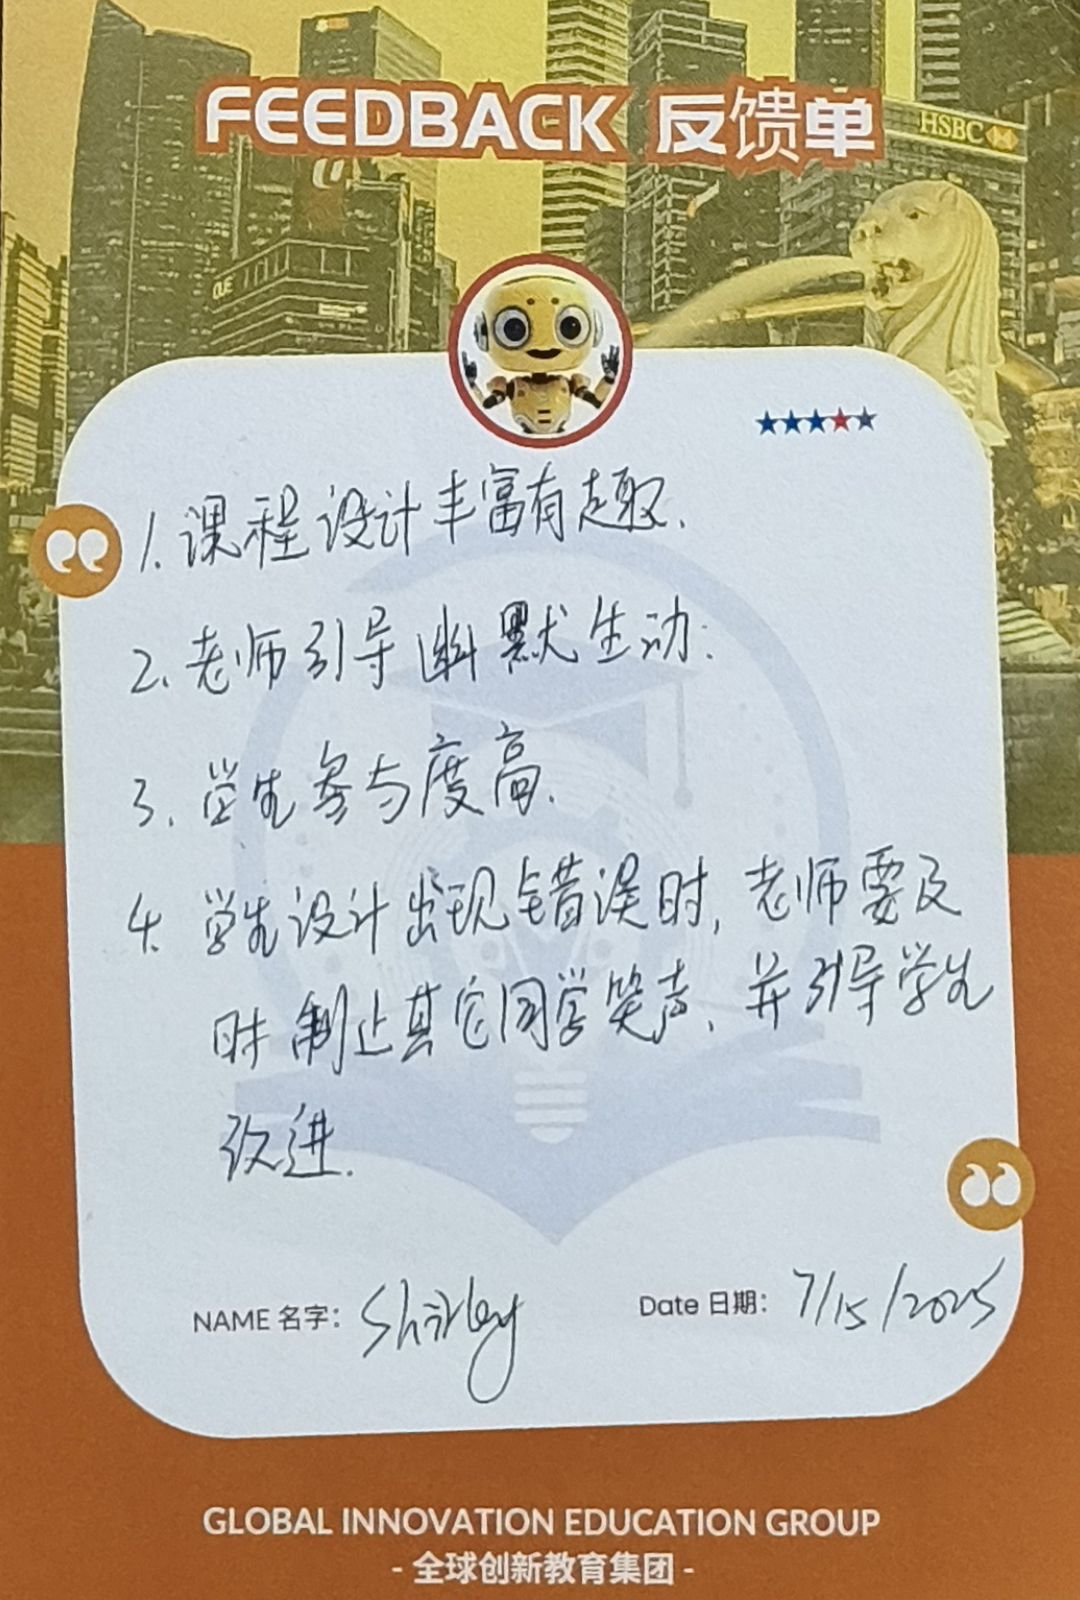 FEEDBACK 反馈单
HSBC
OUE
1. 课程设计丰富有趣.
2. 老师引导幽默生动;
3. 学生参与度高.
4. 学生设计出现错误时, 老师要及
时制止其它同学笑声, 并引导学生
改进.
NAME 名字: Shirley Date 日期: 7/15/2025
GLOBAL INNOVATION EDUCATION GROUP
- 全球创新教育集团 -